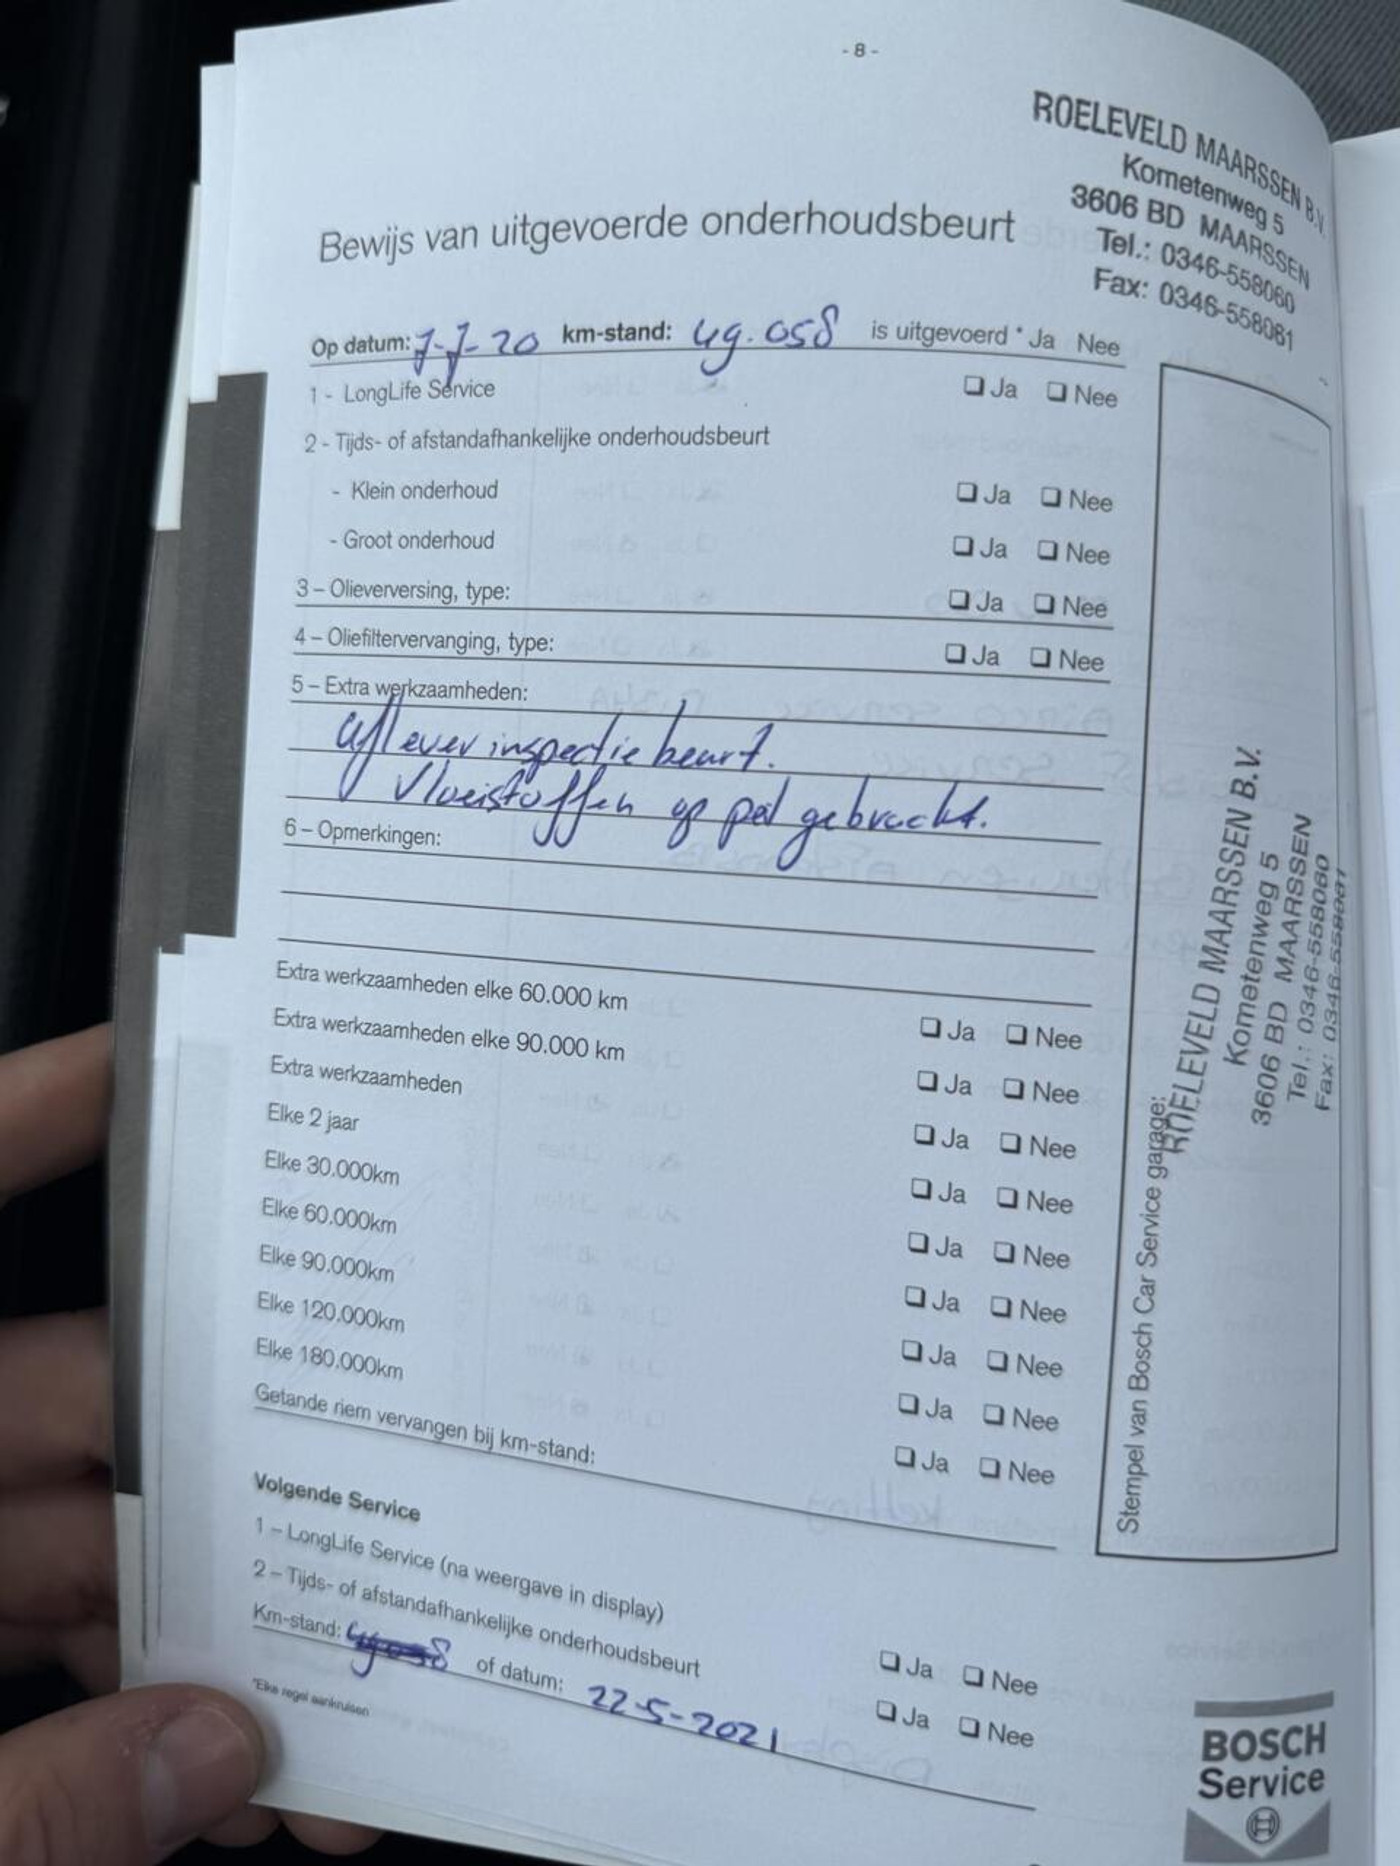 - 8 -
ROELEVELD MAARSSEN B.V.
Kometenweg 5
3606 BD MAARSSEN
Tel.: 0346-558060
Fax: 0346-558061
Bewijs van uitgevoerde onderhoudsbeurt
Op datum: 7-7-20 km-stand: 49.058 is uitgevoerd * Ja Nee
1 - LongLife Service ❏ Ja ❏ Nee
2 - Tijds- of afstandafhankelijke onderhoudsbeurt
- Klein onderhoud ❏ Ja ❏ Nee
- Groot onderhoud ❏ Ja ❏ Nee
3 – Olieverversing, type: ❏ Ja ❏ Nee
4 – Oliefiltervervanging, type: ❏ Ja ❏ Nee
5 – Extra werkzaamheden:
aflever inspectie beurt.
Vloeistoffen op peil gebracht.
6 – Opmerkingen:
Extra werkzaamheden elke 60.000 km ❏ Ja ❏ Nee
Extra werkzaamheden elke 90.000 km ❏ Ja ❏ Nee
Extra werkzaamheden ❏ Ja ❏ Nee
Elke 2 jaar ❏ Ja ❏ Nee
Elke 30.000km ❏ Ja ❏ Nee
Elke 60.000km ❏ Ja ❏ Nee
Elke 90.000km ❏ Ja ❏ Nee
Elke 120.000km ❏ Ja ❏ Nee
Elke 180.000km ❏ Ja ❏ Nee
Getande riem vervangen bij km-stand:
Stempel van Bosch Car Service garage:
ROELEVELD MAARSSEN B.V.
Kometenweg 5
3606 BD MAARSSEN
Tel.: 0346-558060
Fax: 0346-558061
Volgende Service
1 – LongLife Service (na weergave in display) ❏ Ja ❏ Nee
2 – Tijds- of afstandafhankelijke onderhoudsbeurt ❏ Ja ❏ Nee
Km-stand: of datum: 22-5-2021
*Elke regel aankruisen
BOSCH
Service